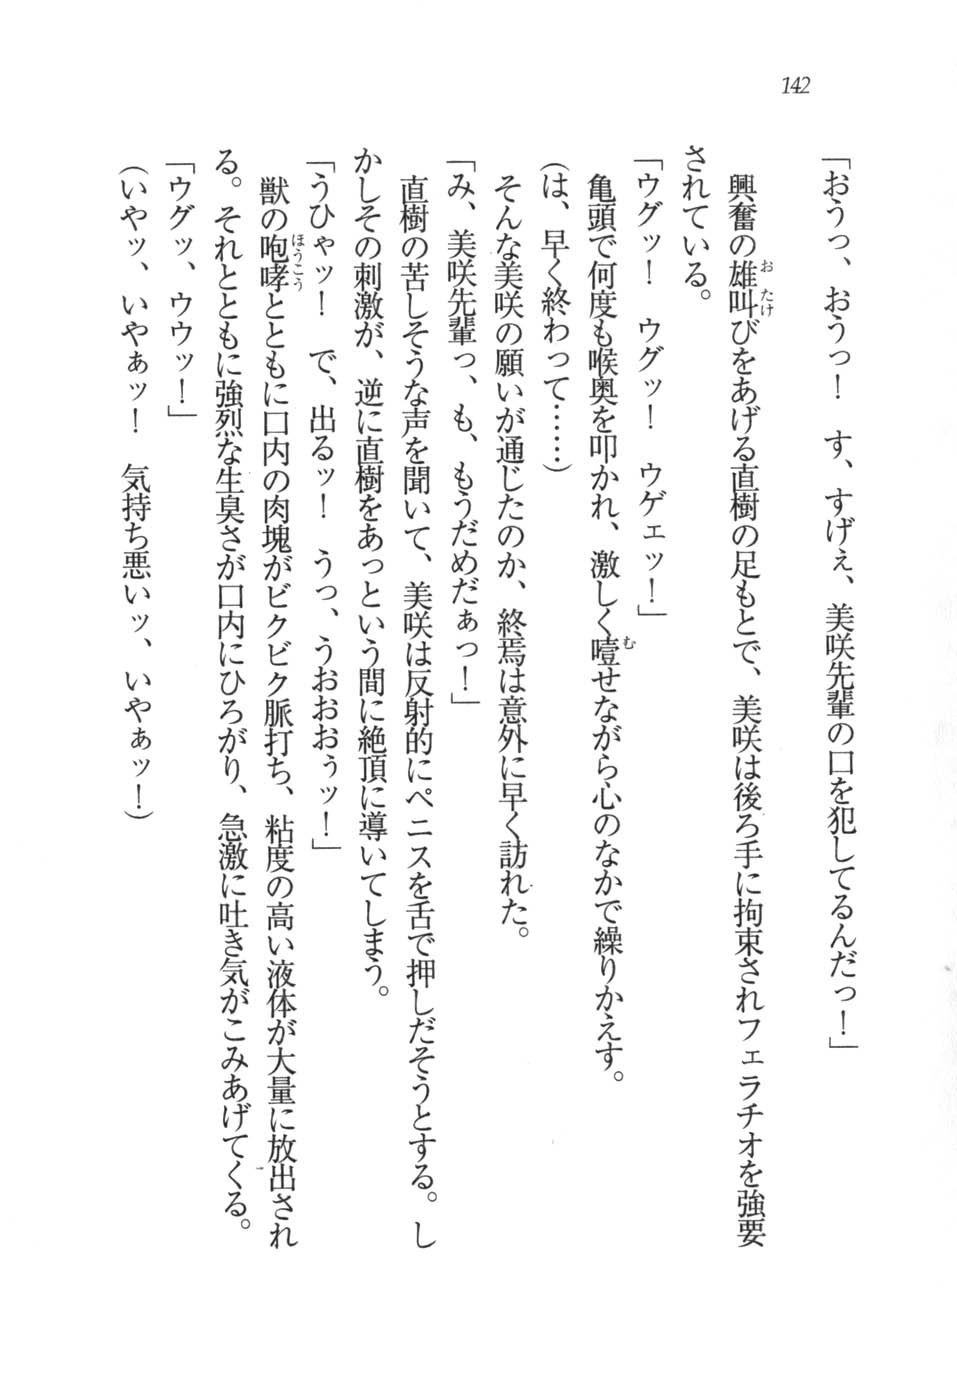 142
「おうっ、おうっ！　す、すげぇ、美咲先輩の口を犯してるんだっ！」
興奮の雄叫びをあげる直樹の足もとで、美咲は後ろ手に拘束されフェラチオを強要
されている。
「ウグッ！　ウグッ！　ウゲェッ！」
亀頭で何度も喉奥を叩かれ、激しく噎せながら心のなかで繰りかえす。
（は、早く終わって……）
そんな美咲の願いが通じたのか、終焉は意外に早く訪れた。
「み、美咲先輩っ、も、もうだめだぁっ！」
直樹の苦しそうな声を聞いて、美咲は反射的にペニスを舌で押しだそうとする。し
かしその刺激が、逆に直樹をあっという間に絶頂に導いてしまう。
「うひゃッ！　で、出るッ！　うっ、うおおぉッ！」
獣の咆哮とともに口内の肉塊がビクビク脈打ち、粘度の高い液体が大量に放出され
る。それとともに強烈な生臭さが口内にひろがり、急激に吐き気がこみあげてくる。
「ウグッ、ウウッ！」
（いやッ、いやぁッ！　気持ち悪いッ、いやぁッ！）